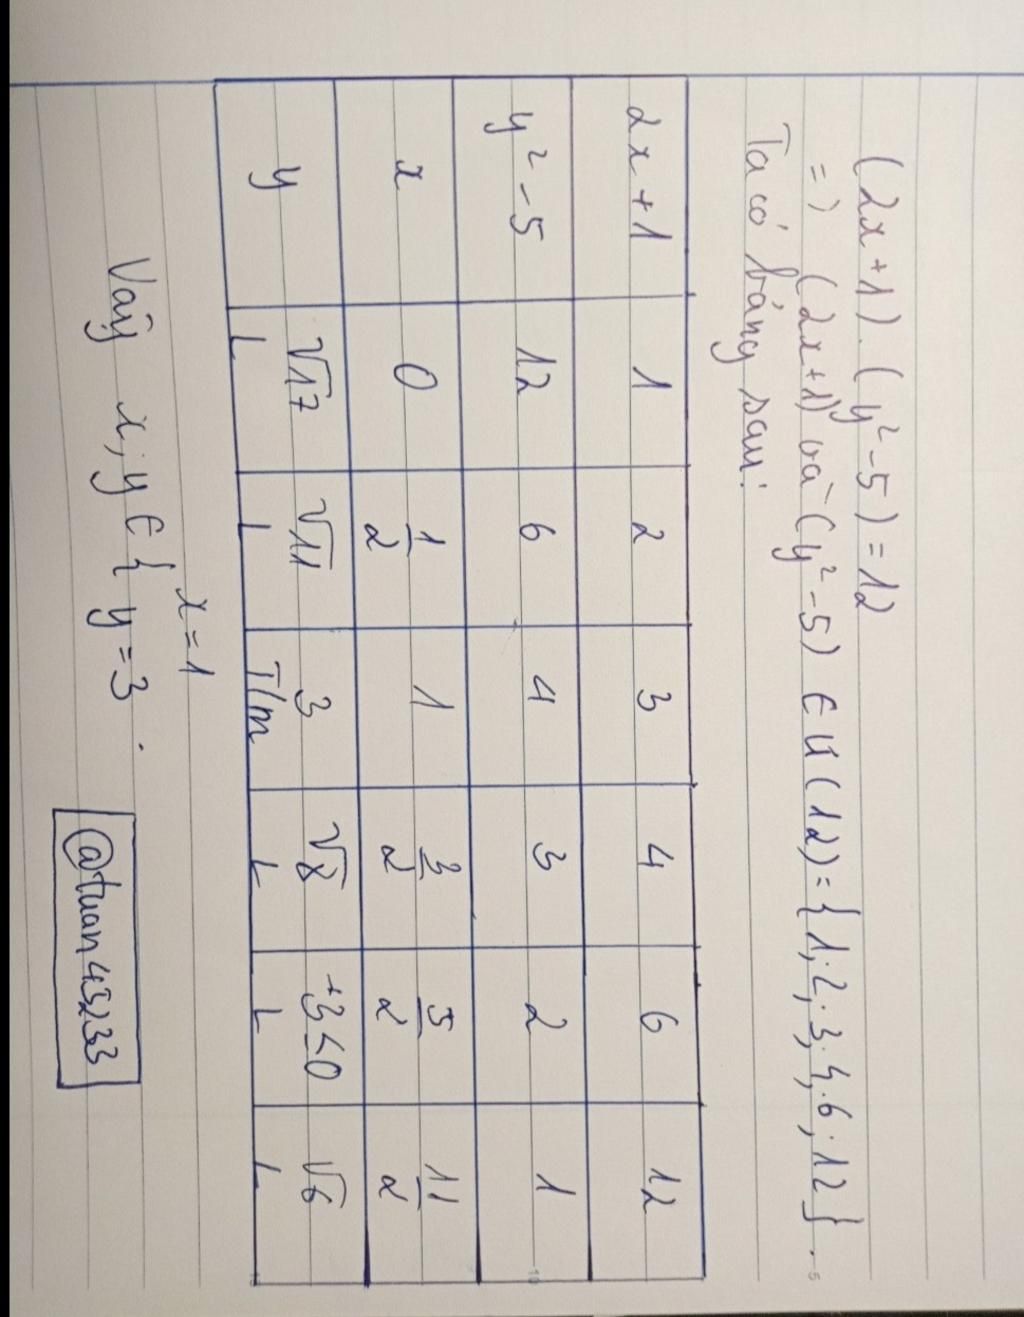 (2x+1).(y²-5)=12
=) (2x+1) và (y²-5) ∈ Ư(12)={1;2;3;4;6;12}.
Ta có bảng sau:
2x+1 1 2 3 4 6 12
y²-5 12 6 4 3 2 1
x 0 1/2 1 3/2 5/2 11/2
y √17 √11 3 √8 √6
L L T/m L L L
Vậy x;y ∈ { x=1
y=3.
@tuan43233